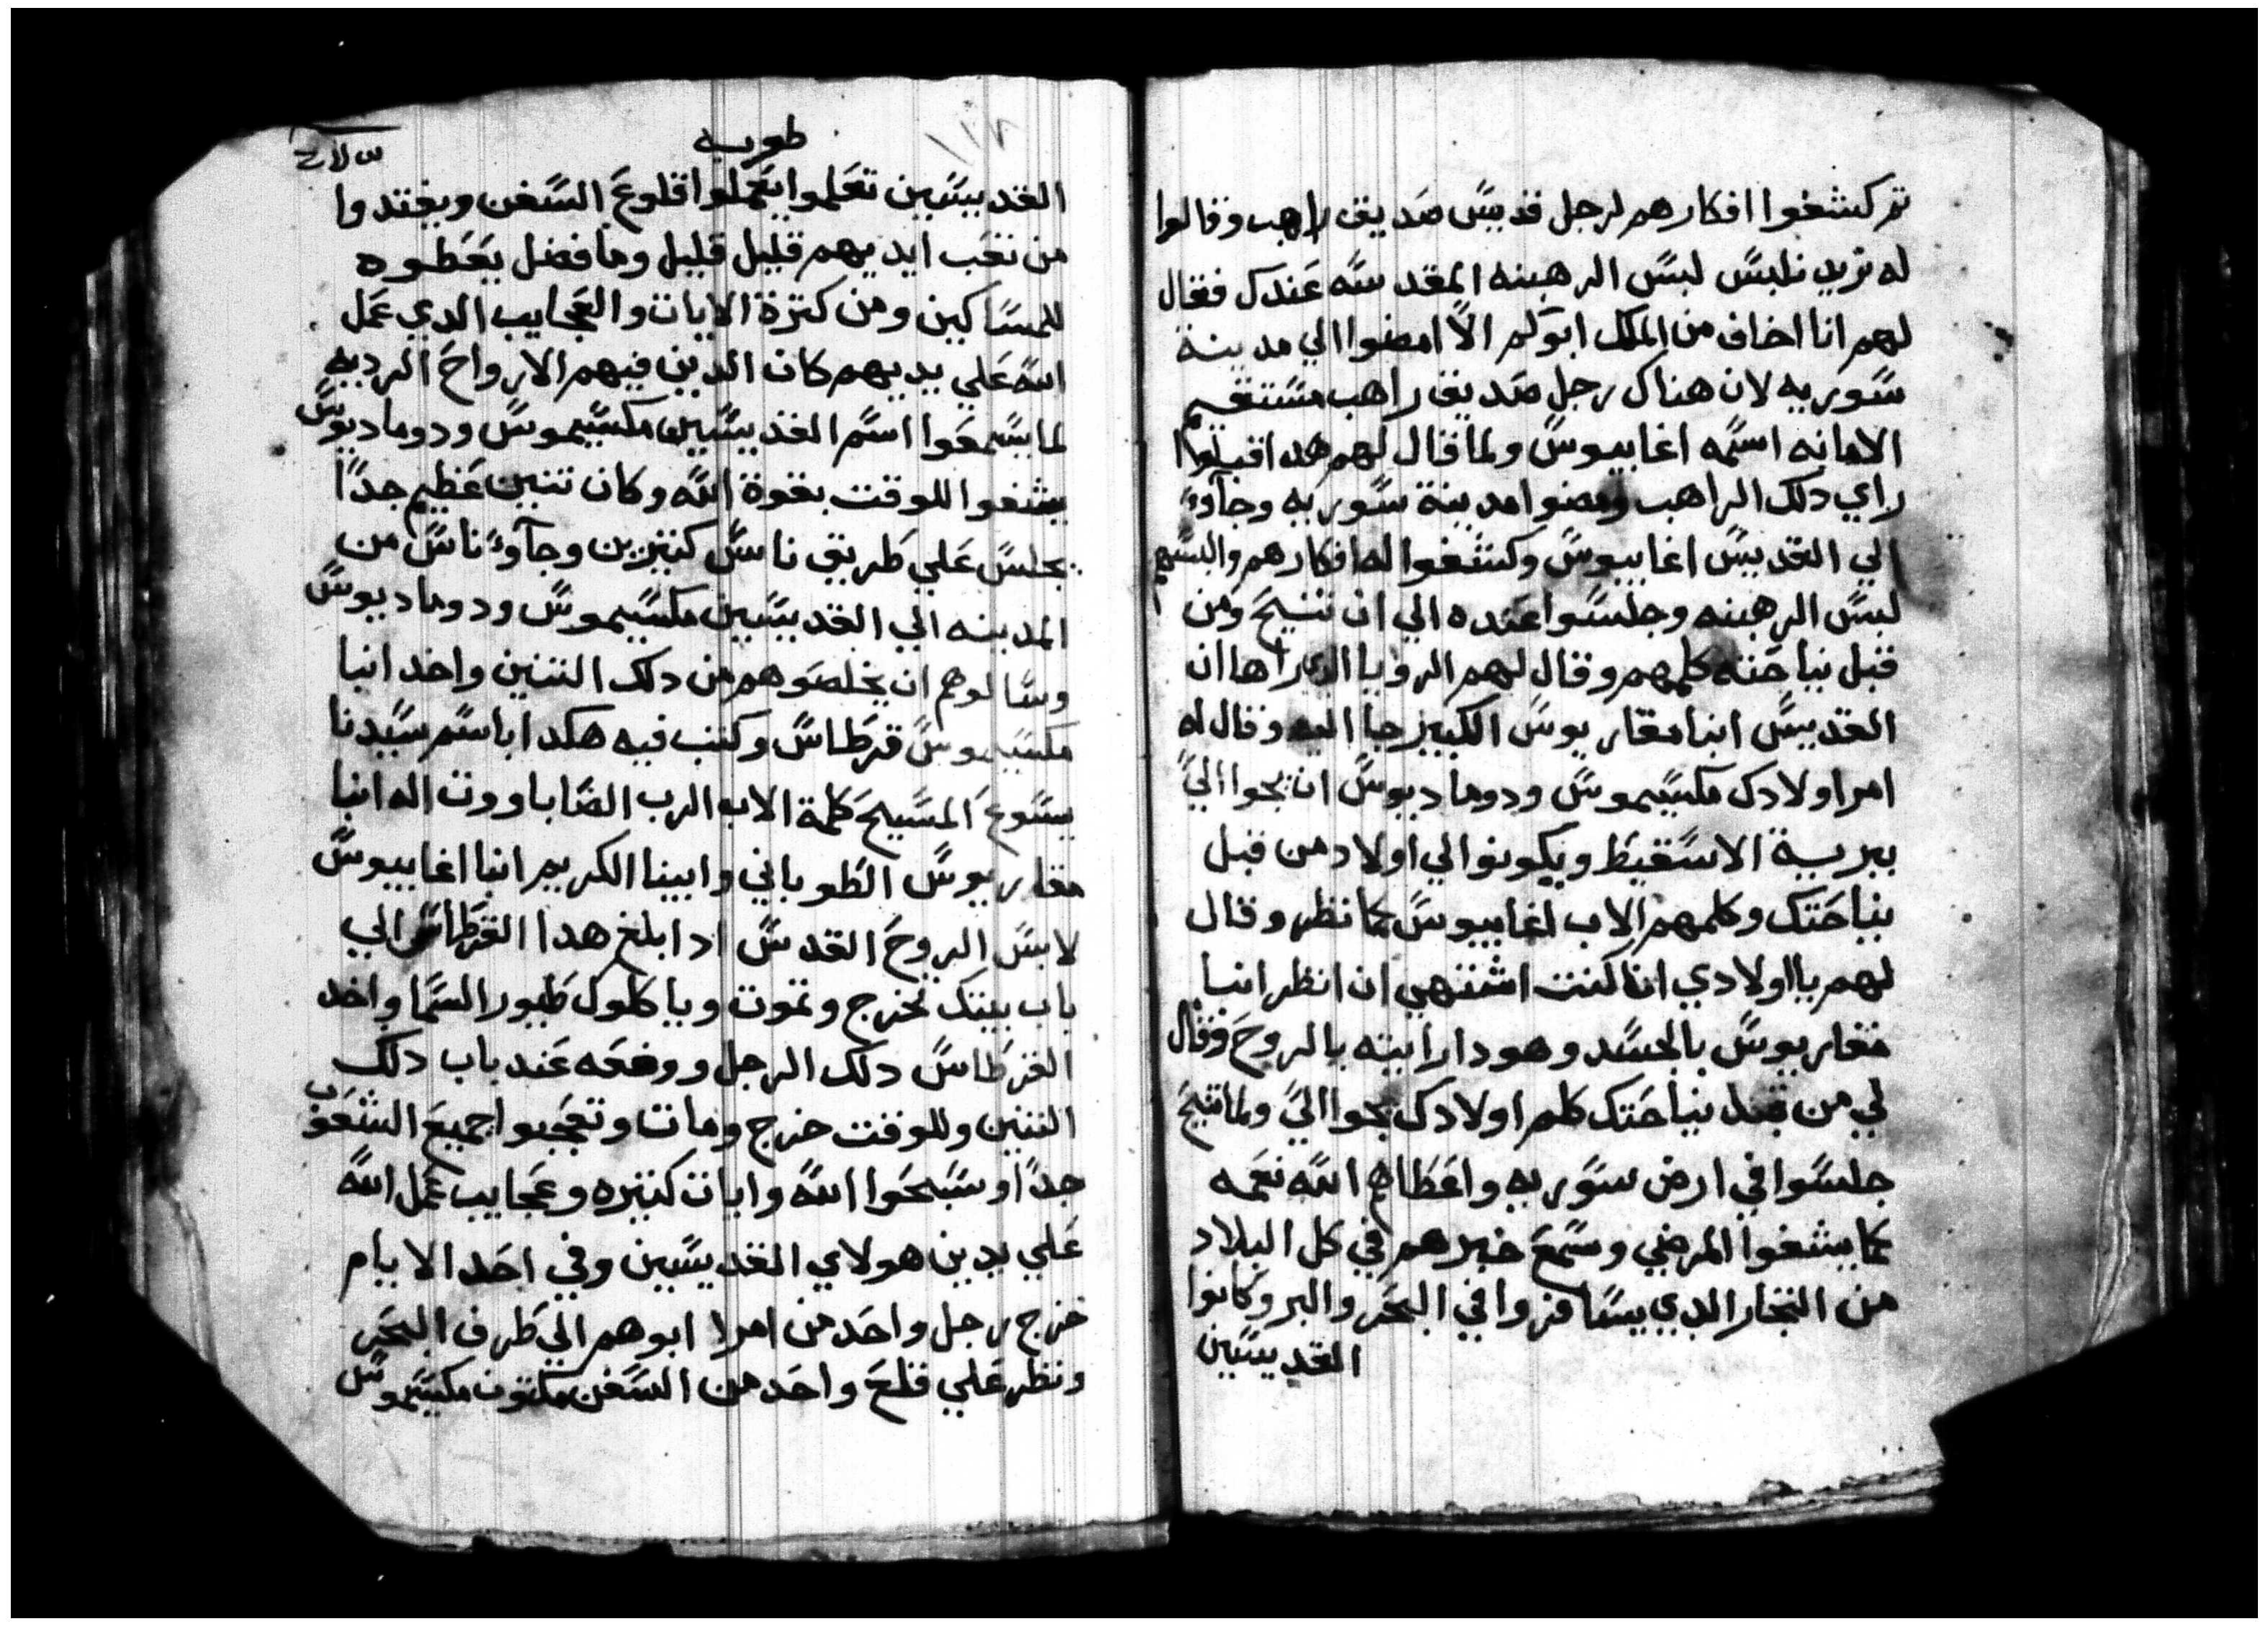 تم كشفوا افكارهم لرجل قديس صديق راهب وقالوا
له نريد نلبس لبس الرهبنه المقدسه عندك فقال
لهم انا اخاف من الملك ابوكم الا امضوا الي مدينة
سوريه لان هناك رجل صديق راهب مستقيم
الامانه اسمه اغابيوس ولما قال لهم هدا قبلوا
راي دلك الراهب ومضوا مدينة سوريه وجاوء
الي القديس اغابيوس وكشفوا له افكارهم والبسهم
لبس الرهبنه وجلسوا عنده الي ان تنيح ومن
قبل نياحته كلمهم وقال لهم الرويا الدي راها ان
القديس انبا مقاريوس الكبير جا اليه وقال له
امر اولادك مكسيموس ودوماديوس ان يجوا الي
ببرية الاسقيط ويكونوا لي اولاد من قبل
نياحتك وكلمهم الاب اغابيوس كما نظر وقال
لهم يا اولادي انا كنت اشتهي ان انظر انبا
مقاريوس بالجسد وهودا رايته بالروح وقال
لي من قبل نياحتك كلم اولادك يجوا الي ولما تنيح
جلسوا في ارض سوريه واعطاهم الله نعمه
كما يشفوا المرضي وسمع خبرهم في كل البلاد
من التجار الدي يسافروا في البحر والبر وكانوا
القديسين
طوبه
١١٢
القديسين تعلموا يعملوا قلوع السفن ويقتدوا
من تعب ايديهم قليل قليل وما فضل يعطوه
للمساكين ومن كترة الايات والعجايب الدي عمل
الله علي يديهم كان الدين فيهم الارواح الرديه
لما يسمعوا اسم القديسين مكسيموس ودوماديوس
يشفوا للوقت بقوة الله وكان تنين عظيم جدا
يجلس علي طريق ناس كتيرين وجاوء ناس من
المدينه الي القديسين مكسيموس ودوماديوس
وسالوهم ان يخلصوهم من دلك التنين واخد انبا
مكسيموس قرطاس وكتب فيه هكدا باسم سيدنا
يسوع المسيح كلمة الاب الرب الضابا ووت اله انبا
مقاريوس الطوباني وابينا الكريم انبا اغابيوس
لابس الروح القدس ادا بلغ هدا القرطاس الي
باب بيتك تخرج وتموت وياكلوك طيور السما واخد
القرطاس دلك الرجل ووضعه عند باب دلك
التنين وللوقت خرج ومات وتعجبوا جميع الشعوب
جدا وسبحوا الله وايات كتيره وعجايب عمل الله
علي يدين هولاي القديسين وفي احد الايام
خرج رجل واحد من امرا ابوهم الي طرف البحر
ونظر علي قلع واحد من السفن مكتوب مكسيموس